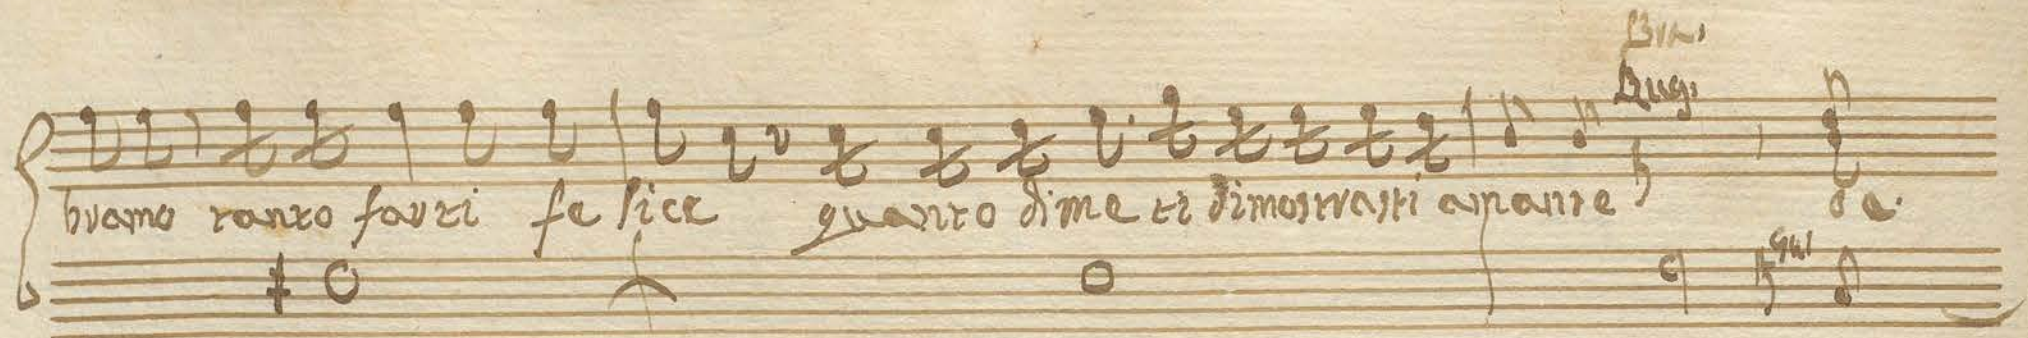 Bra.
Rug.
bramo tanto farti fe lice quanto di me ti dimostrasti amante de.